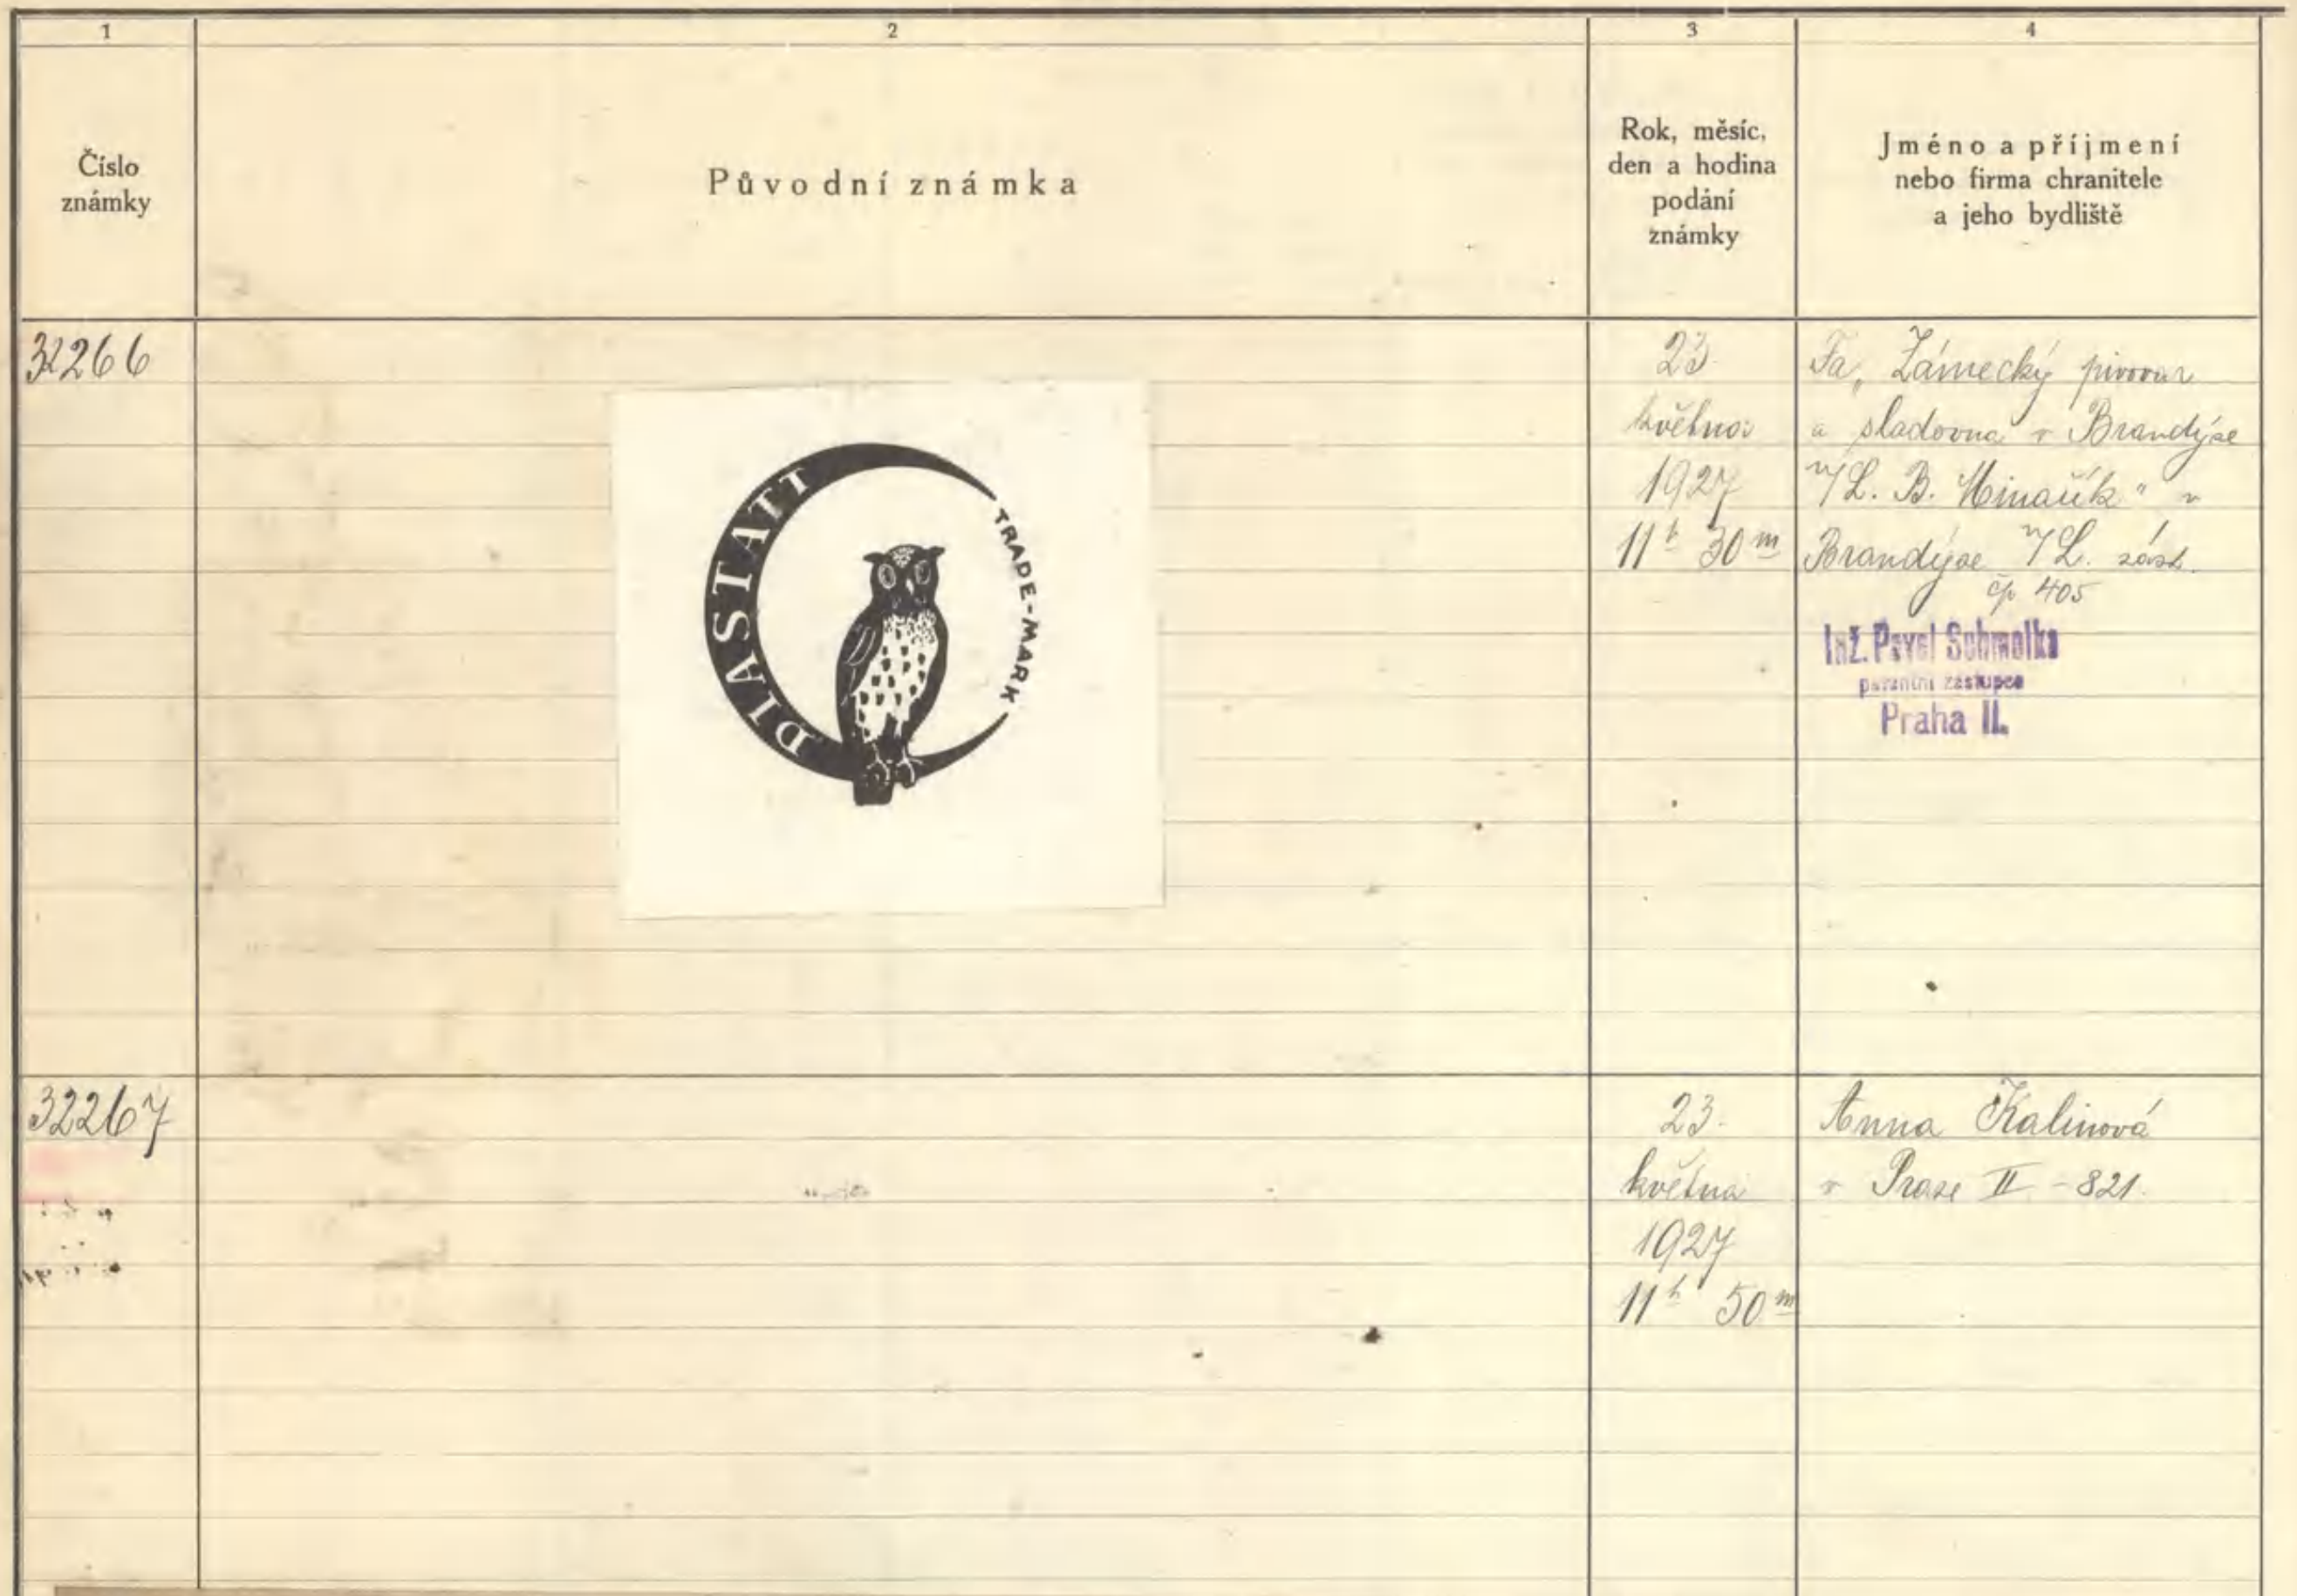 1
2
3
4
Číslo
známky
Původní známka
Rok, měsíc,
den a hodina
podání
známky
Jméno a příjmení
nebo firma chranitele
a jeho bydliště
32266
DIASTATT
TRADE-MARK
23.
května
1927
11h 30m
Fa „Zámecký pivovar
a sladovna v Brandýse
n/L. B. Minařík" v
Brandýse n/L. zást.
čp 405
Inž. Pavel Schmolka
patentní zástupce
Praha II.
32267
23.
května
1927
11h 50m
Anna Kalinová
v Praze II - 821.